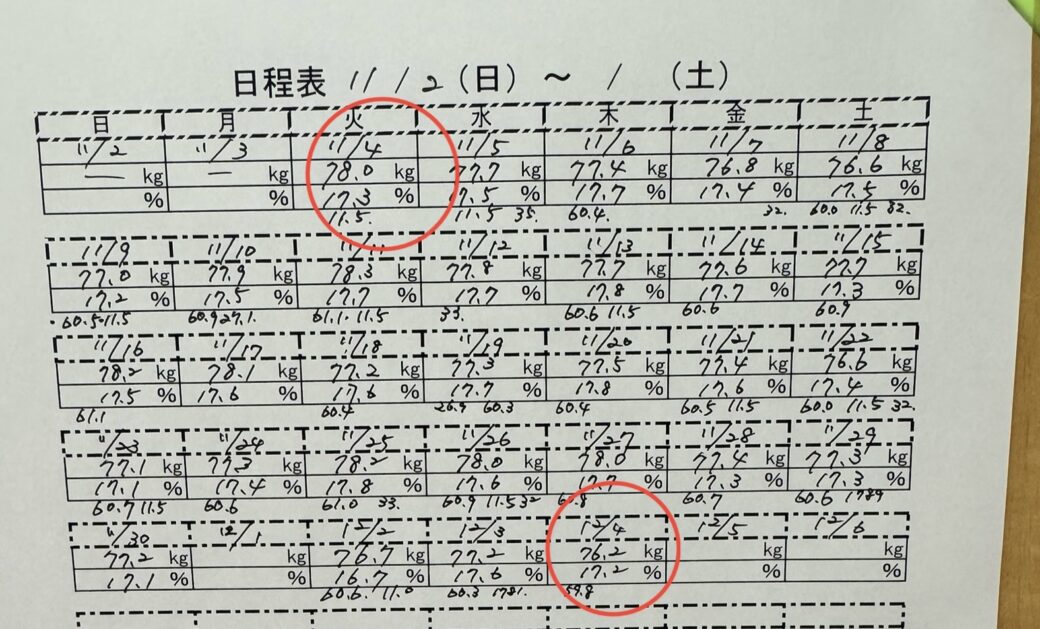 日程表 11/2(日) ～ / (土)
日 月 火 水 木 金 土
11/2 11/3 11/4 11/5 11/6 11/7 11/8
— kg — kg 78.0 kg 77.7 kg 77.4 kg 76.8 kg 76.6 kg
% % 17.3 % 17.5 % 17.7 % 17.4 % 17.5 %
11.5 11.5 35. 60.4. 32. 60.0 11.5 32.
11/9 11/10 11/11 11/12 11/13 11/14 11/15
77.0 kg 77.9 kg 78.3 kg 77.8 kg 77.7 kg 77.6 kg 77.7 kg
17.2 % 17.5 % 17.7 % 17.7 % 17.8 % 17.7 % 17.3 %
60.5 11.5 60.9 27.1. 61.1 11.5 33. 60.6 11.5 60.6 60.9
11/16 11/17 11/18 11/19 11/20 11/21 11/22
78.2 kg 78.1 kg 77.2 kg 77.3 kg 77.5 kg 77.4 kg 76.6 kg
17.5 % 17.6 % 17.6 % 17.7 % 17.8 % 17.6 % 17.4 %
61.1 60.4 26.9 60.3 60.4 60.5 11.5 60.0 11.5 32.
11/23 11/24 11/25 11/26 11/27 11/28 11/29
77.1 kg 77.3 kg 78.2 kg 78.0 kg 78.0 kg 77.4 kg 77.3 kg
17.1 % 17.4 % 17.8 % 17.6 % 17.7 % 17.3 % 17.3 %
60.7 11.5 60.6 61.0 33. 60.9 11.5 32 60.8 60.7 60.6 1789
11/30 12/1 12/2 12/3 12/4 12/5 12/6
77.2 kg kg 76.7 kg 77.2 kg 76.2 kg kg kg
17.1 % % 16.7 % 17.6 % 17.2 % % %
60.6. 11.0 60.3 1781. 59.8